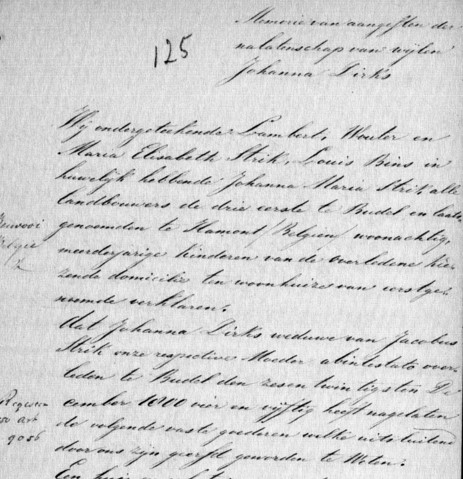 Memorie van aangeften der
nalatenschap van wijlen
Johanna Dirks
125
Wij ondergeteekende Lambert, Wouter en
Maria Elisabeth Strik, Louis Bins in
huwelijk hebbende Johanna Maria Strik alle
landbouwers de drie eerste te Budel en laatst
genoemden te Hamont /Belgien/ woonachtig,
meerderjarige kinderen van de overledene kie-
zende domicilie ten woonhuize van eerstge-
noemde verklaren.
dat Johanna Dirks weduwe van Jacobus
Strik onze respective Moeder abintestato over-
leden te Budel den zesentwintigsten De
cember 1800 vier en vijftig heeft nagelaten
de volgende vaste goederen welke uitsluitend
door ons zijn geerfd geworden te Weten:
Een huis